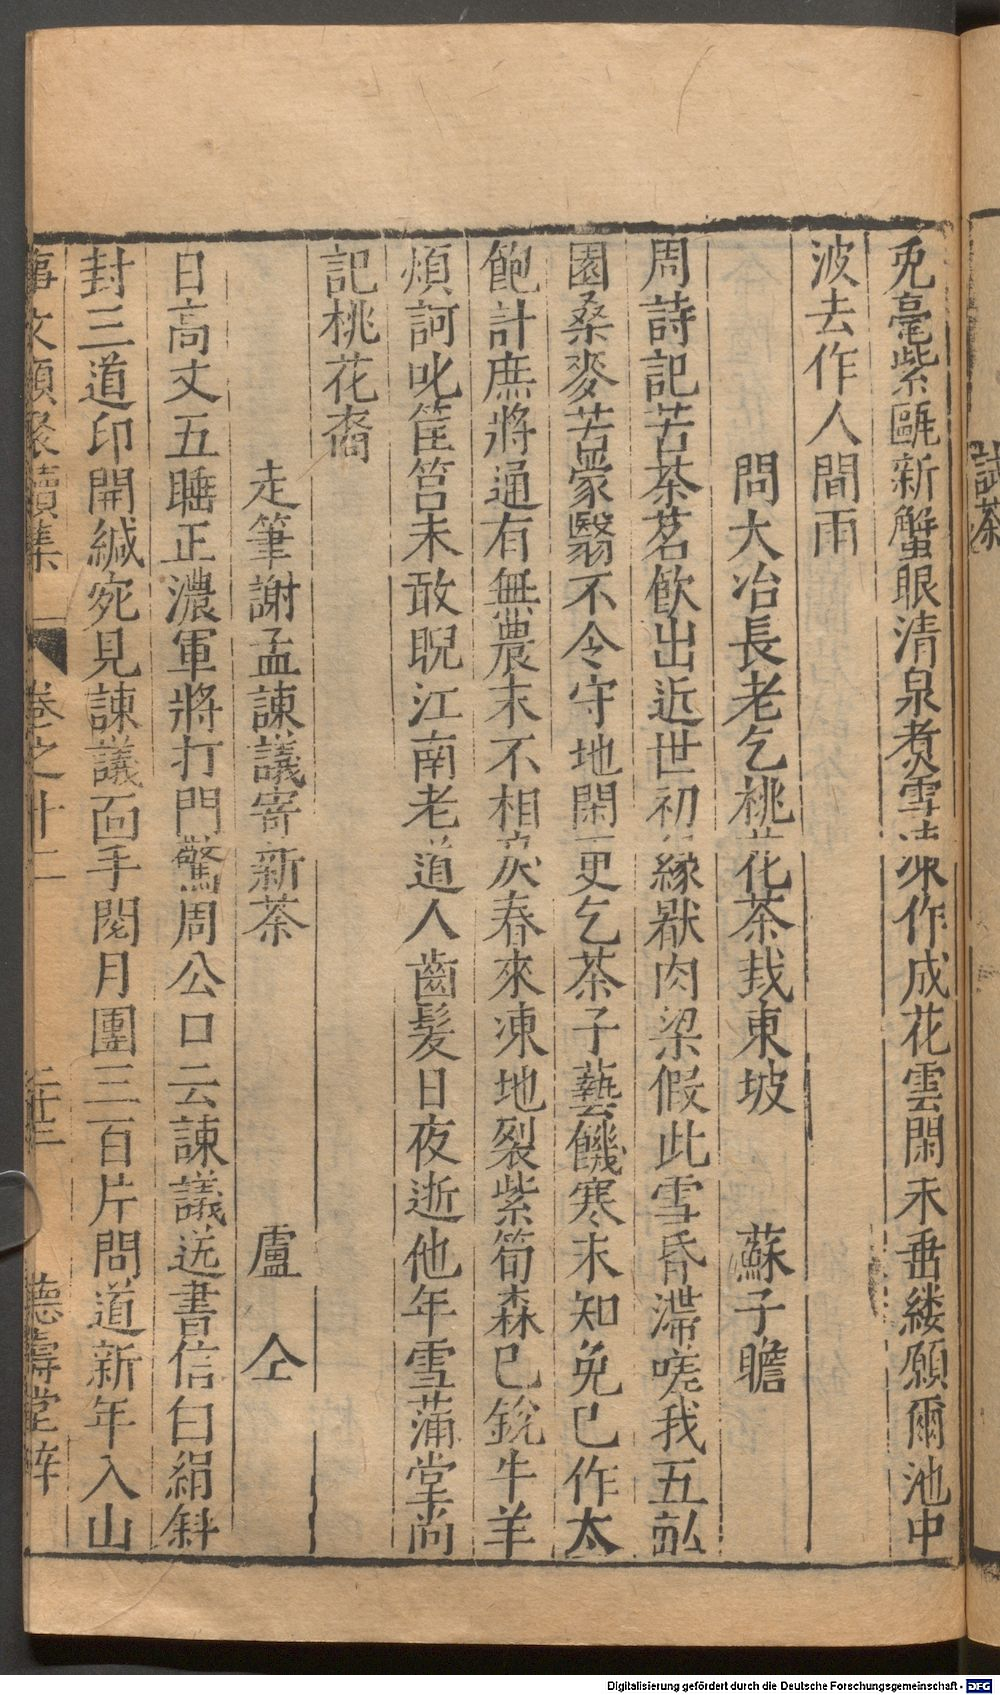 試茶
兎毫紫甌新蟹眼清泉煮雪凍作成花雲閑未垂縷願爾池中
波去作人間雨
問大冶長老乞桃花茶栽東坡 蘇子瞻
周詩記苦荼茗飲出近世初緣厭肉梁假此雪昏滯嗟我五畝
園桑麥苦蒙翳不令守地閑更乞茶子藝饑寒未知免已作太
飽計庶將通有無農末不相戾春來凍地裂紫筍森已銳牛羊
煩訶叱筐筥未敢睨江南老道人齒髮日夜逝他年雪蒲堂尚
記桃花裔
走筆謝孟諫議寄新茶 盧仝
日高丈五睡正濃軍將打門驚周公口云諫議送書信白絹斜
封三道印開緘宛見諫議面手閱月團三百片問道新年入山
事文類聚續集 卷之十二 二十三 德壽堂梓
Digitalisierung gefördert durch die Deutsche Forschungsgemeinschaft - DFG